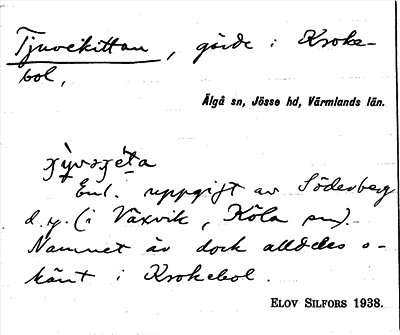 Tjuvekittan, gärde i Kroke-
bol,
Älgå sn, Jösse hd, Värmlands län.
Enl. uppgift av Söderberg
d.y. (i Växvik, Köla sn).
Namnet är dock alldeles o-
känt i Krokebol.
ELOV SILFORS 1938.